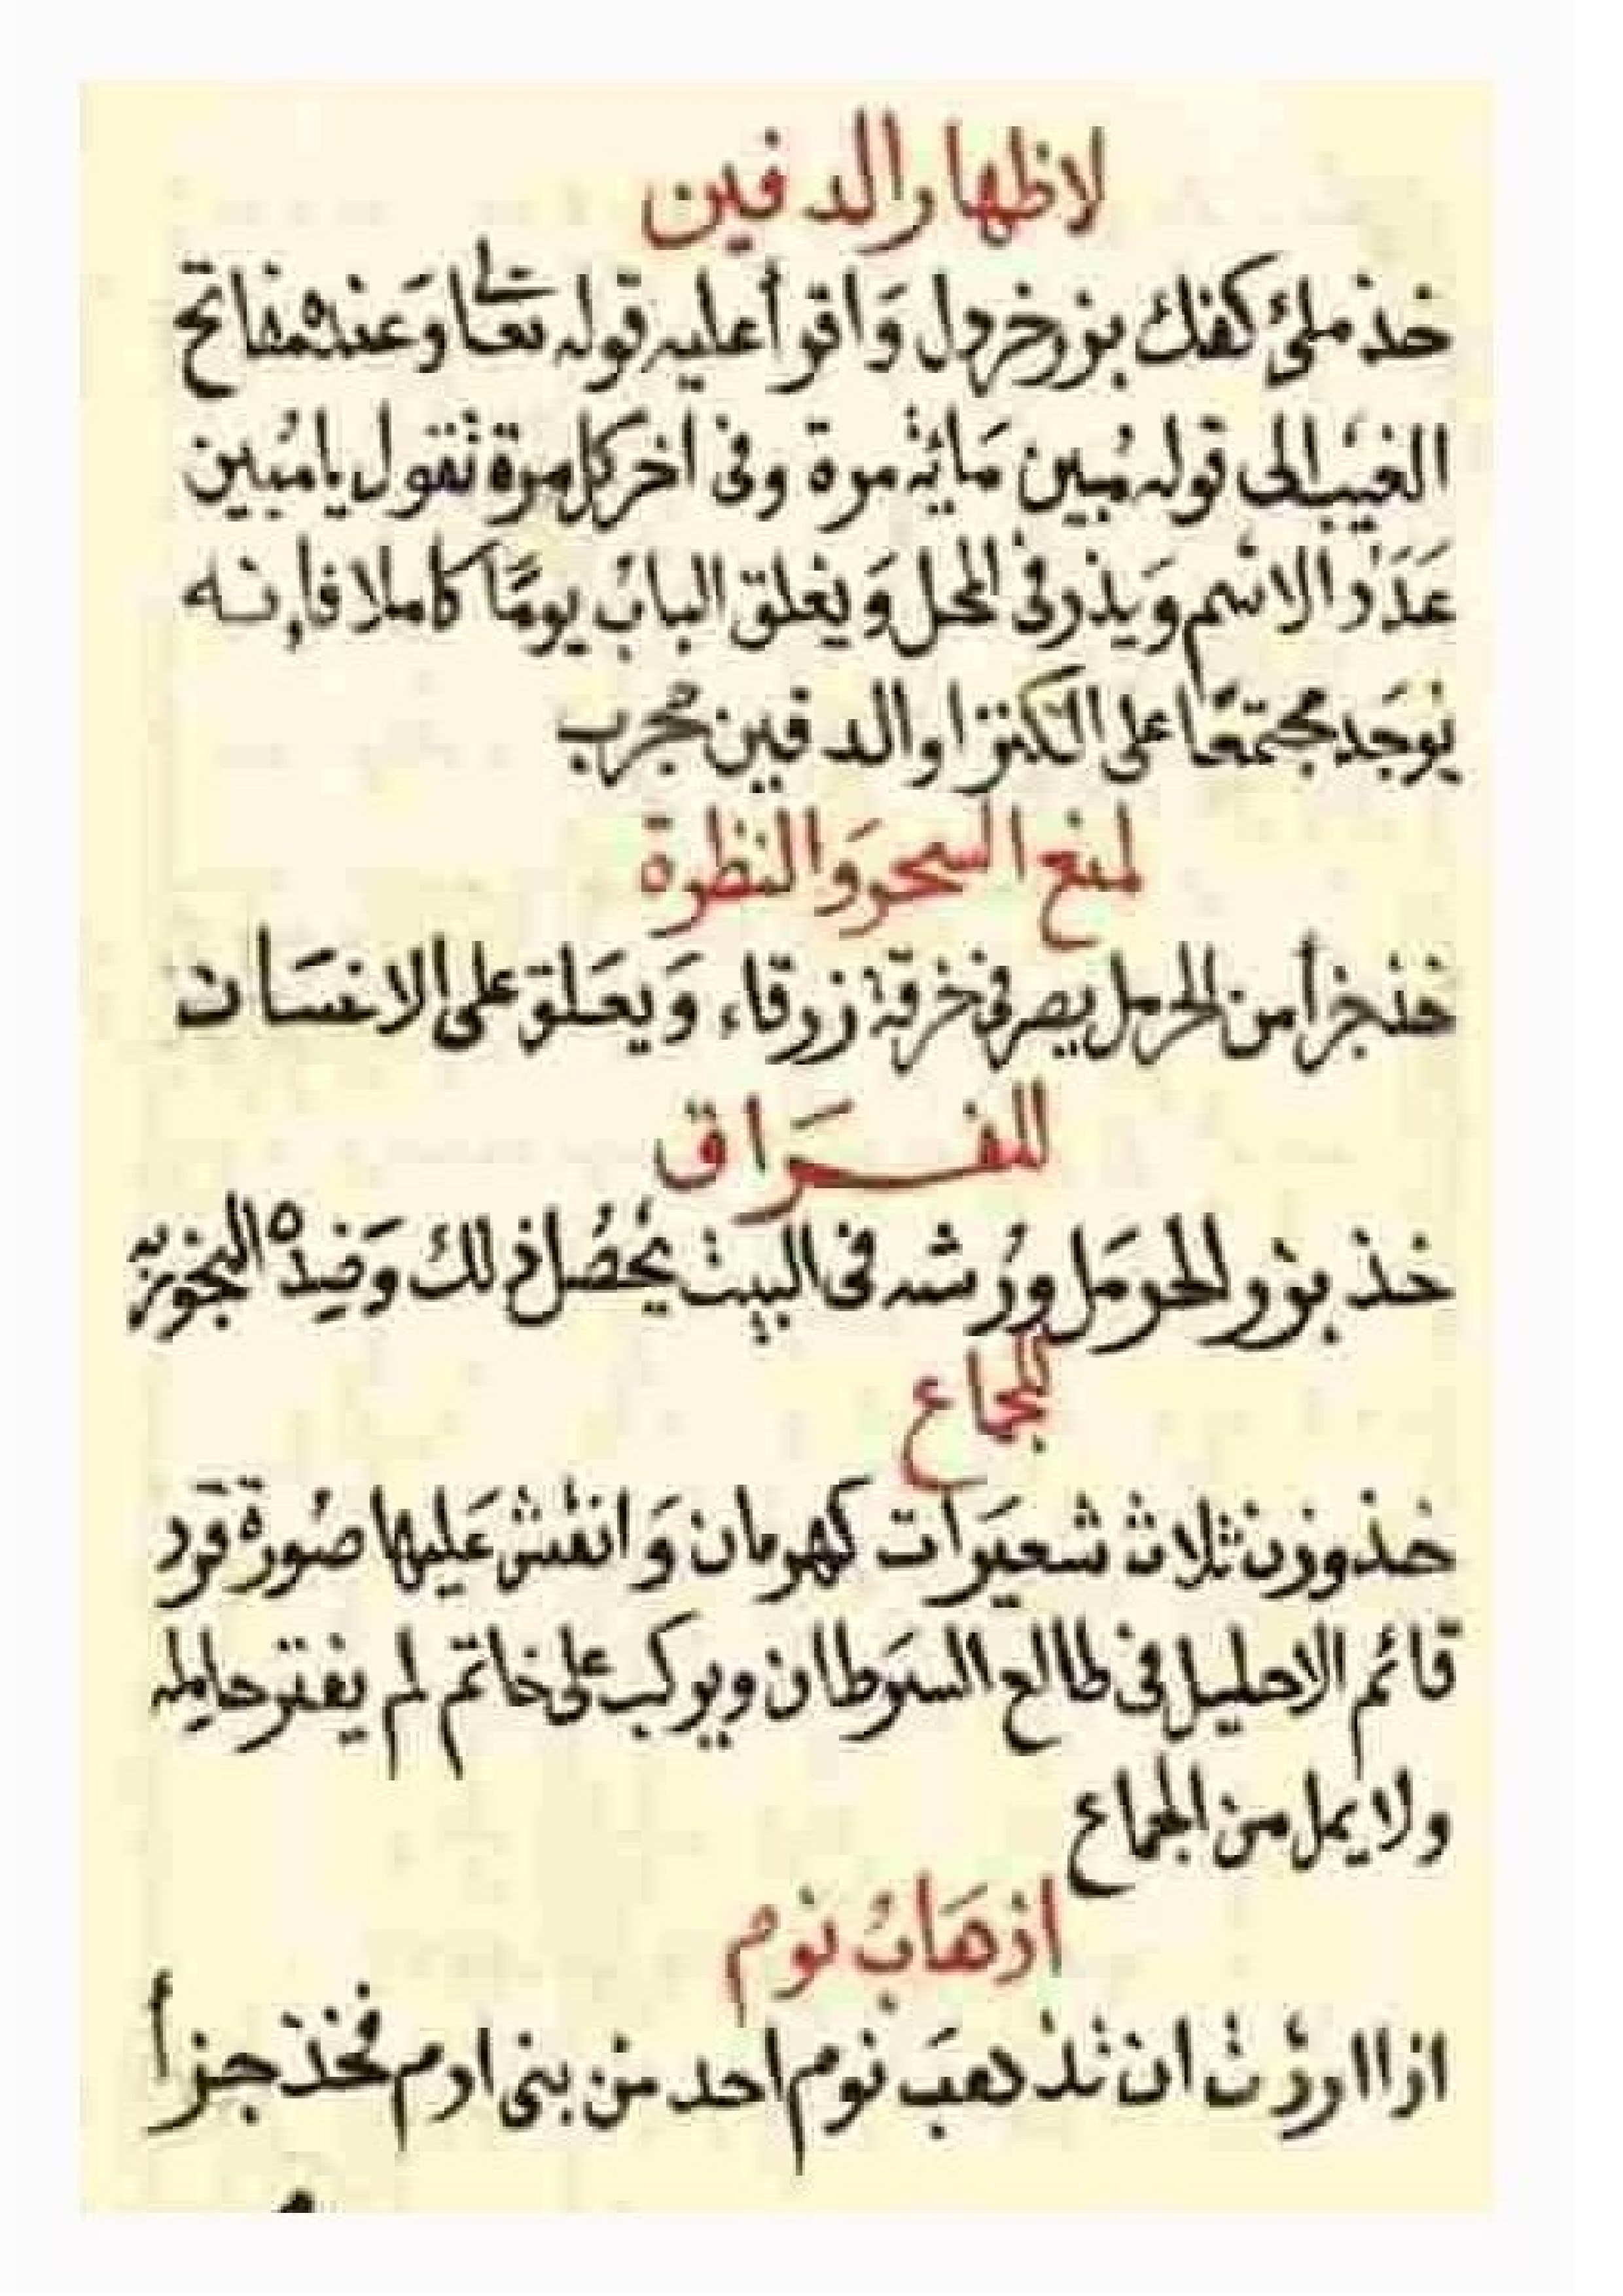 لاظهار الدفين
خذ ملئ كفك بزر خردل وَاقرأ عليه قوله تعالى وَعنده مفاتح
الغيب الى قوله مُبين مَائة مرة وفى اخر كل مرة تقول يا مُبين
عَدَد الاسم وَيذر فى المحل وَيغلق الباب يومًا كاملا فإنه
يوجَد مجتمعًا على الكنز او الدفين مجرب
لمنع السحر وَالنظرة
خذ جزأ من الحرمل يصر فى خرقة زرقاء وَيعَلق على الانسَان
للفرَاق
خذ بزر الحرمَل ورُشه فى البيت يُحصُل ذلك وَضِده البخور به
للجماع
خذ وزن ثلاث شعيرَات كهرمان وَانقش عَليها صُورة قرَد
قائم الاحليل فى طالع السَرطان ويركب على خاتم لم يفتر حامله
ولا يمل من الجماع
اذهَاب نوم
اذا اردت ان تذهبَ نوم احد من بنى ادم فخذ جزأ